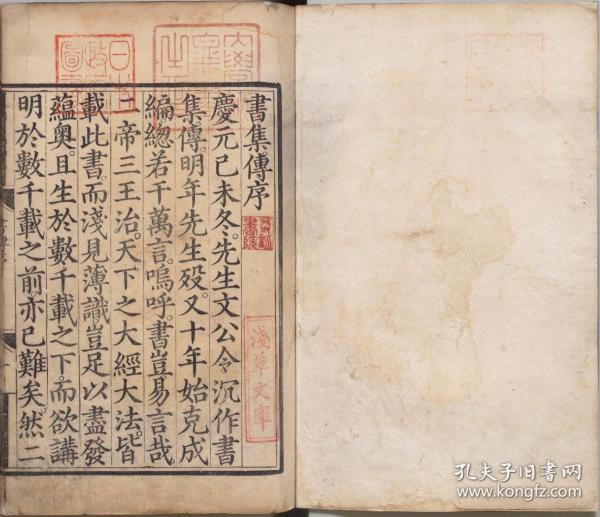 書集傳序
慶元己未冬。先生文公令沉作書
集傳。明年先生歿。又十年始克成
編總若干萬言。嗚呼。書豈易言哉。
二帝三王治。天下之大經大法。皆
載此書。而淺見薄識豈足以盡發
蘊奧。且生於數千載之下。而欲講
明於數千載之前。亦已難矣。然二
淺草文庫
孔夫子旧书网
www.kongfz.com